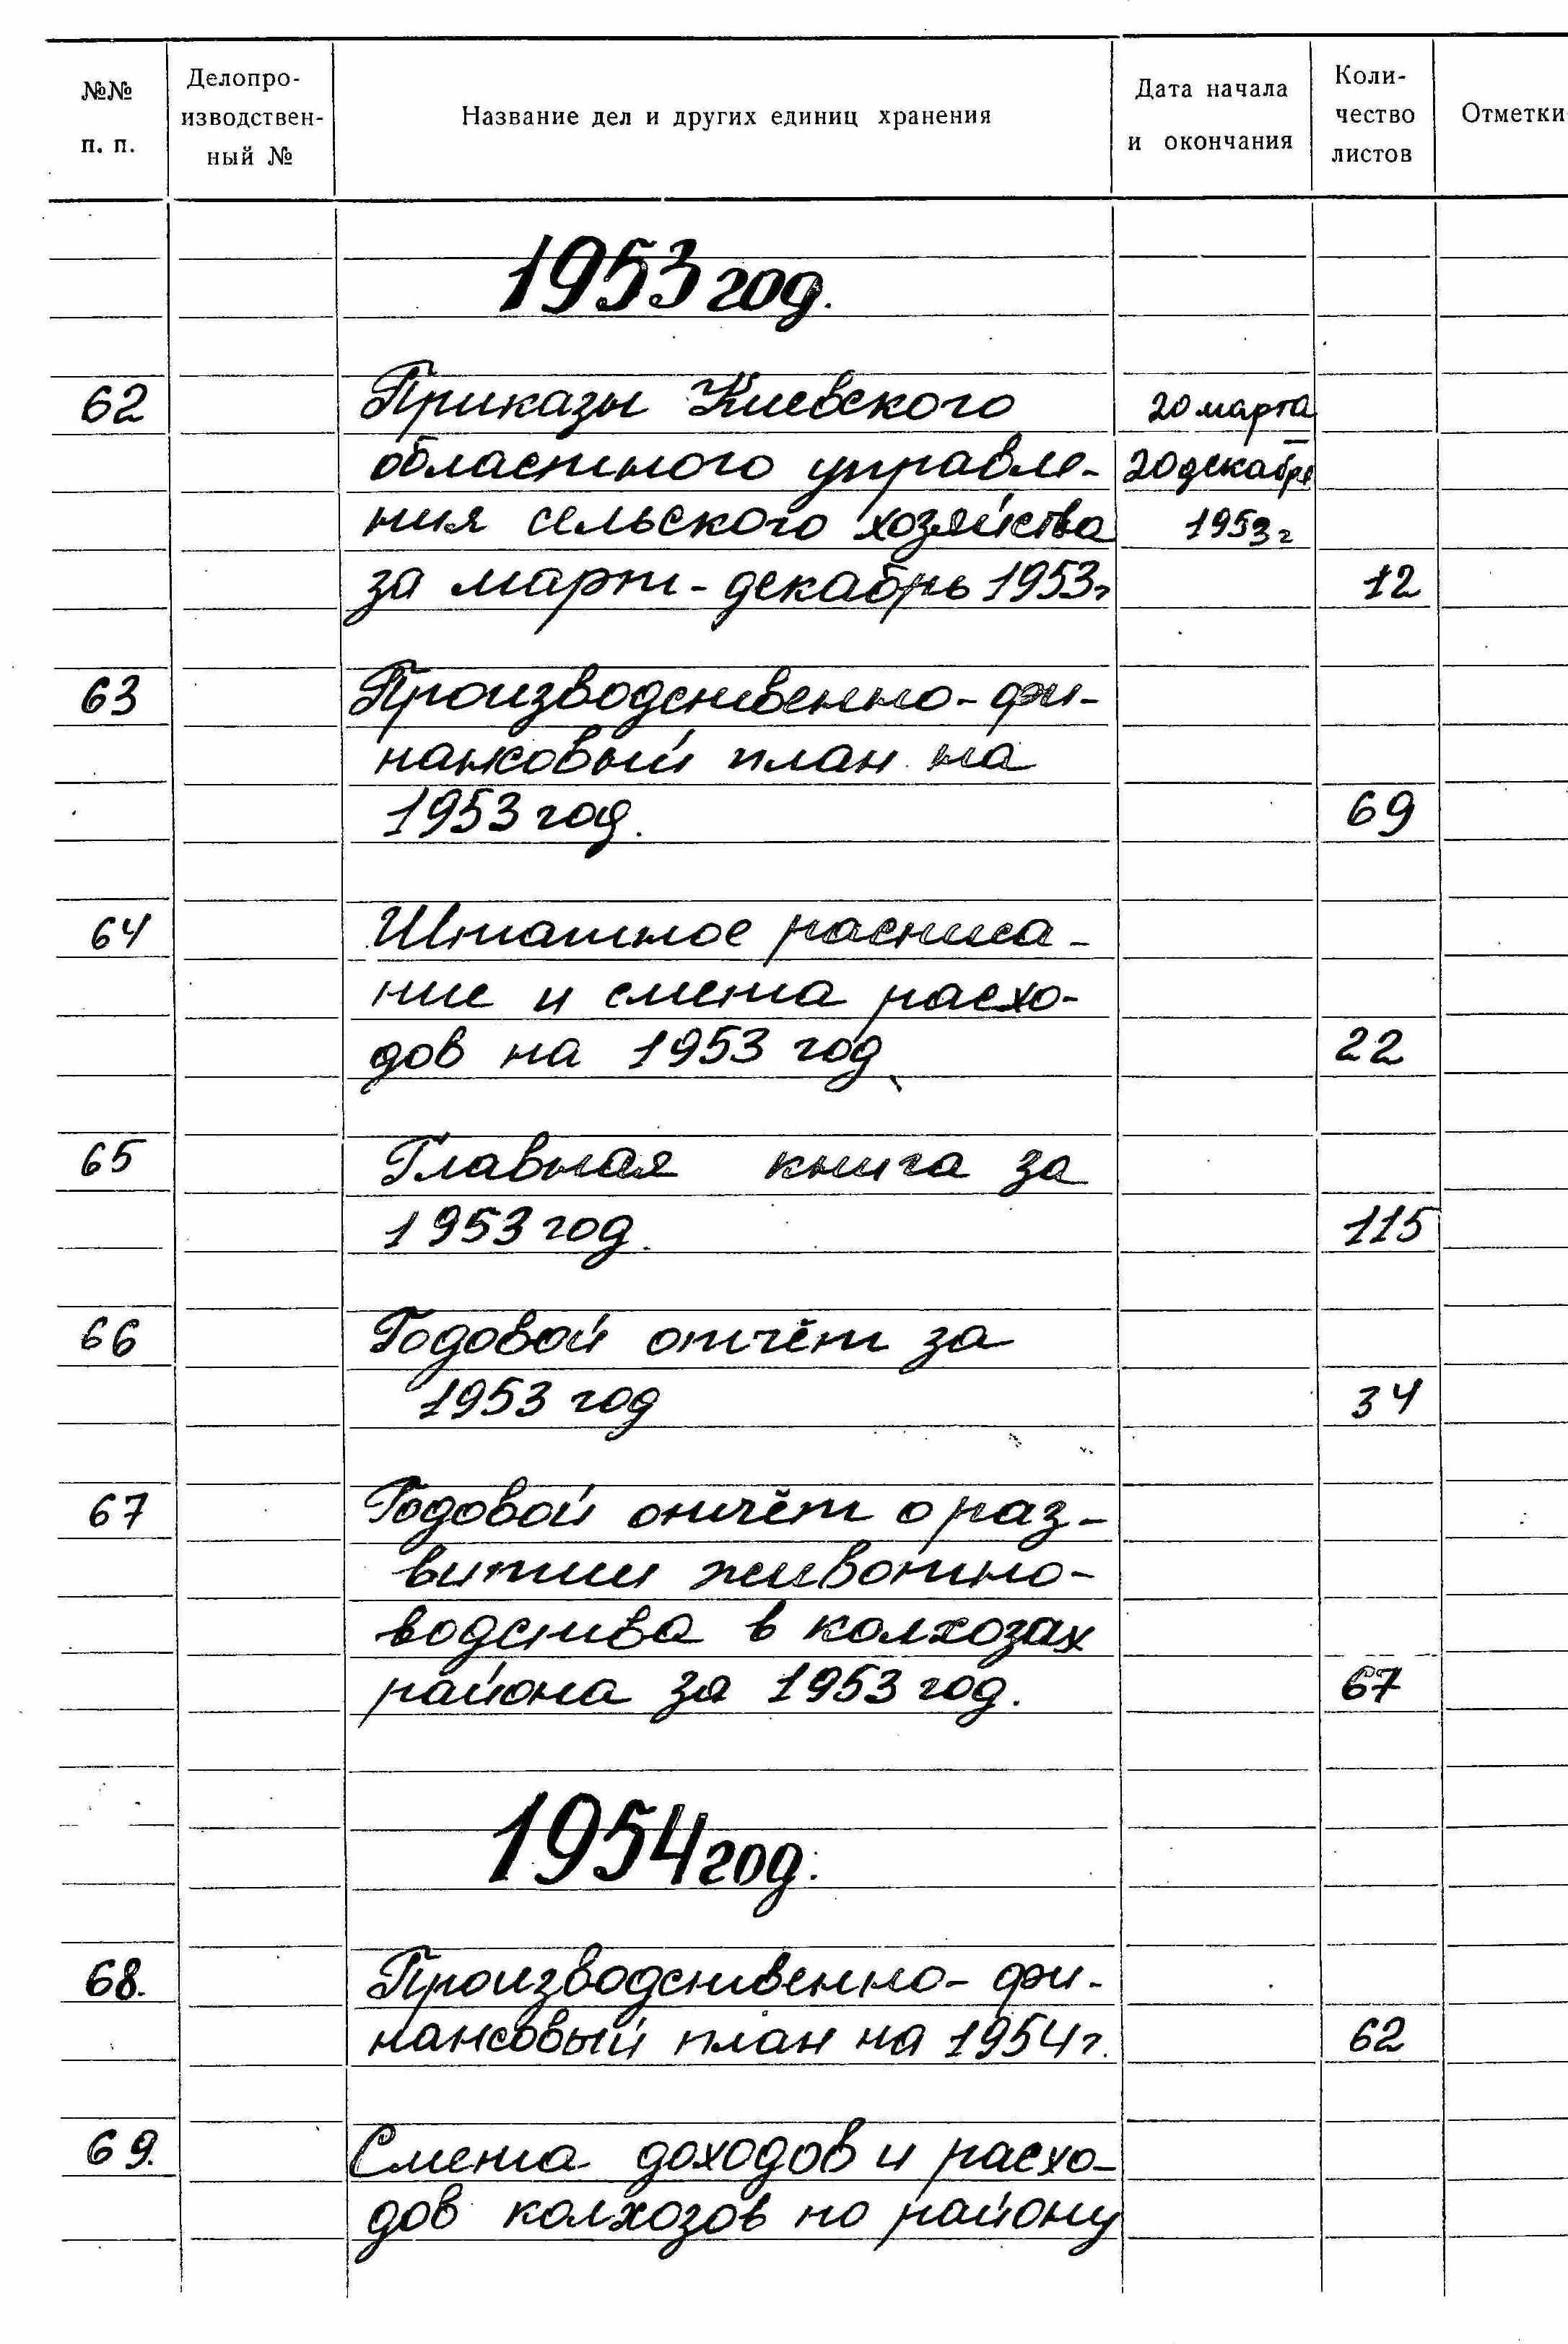 №№ п. п.
Делопро-
изводствен-
ный №
Название дел и других единиц хранения
Дата начала
и окончания
Коли-
чество
листов
Отметки
1953 год.
62 Приказы Киевского 20 марта
областного управле- 20 декабря
ния сельского хозяйства 1953г
за март - декабрь 1953г 12
63 Производственно-фи-
нансовый план на
1953 год. 69
64 Штатное расписа-
ние и смета расхо-
дов на 1953 год 22
65 Главная книга за
1953 год. 115
66 Годовой отчёт за
1953 год 34
67 Годовой отчёт о раз-
витии животно-
водства в колхозах
района за 1953 год. 67
1954 год.
68. Производственно-фи-
нансовый план на 1954г. 62
69. Смета доходов и расхо-
дов колхозов по району